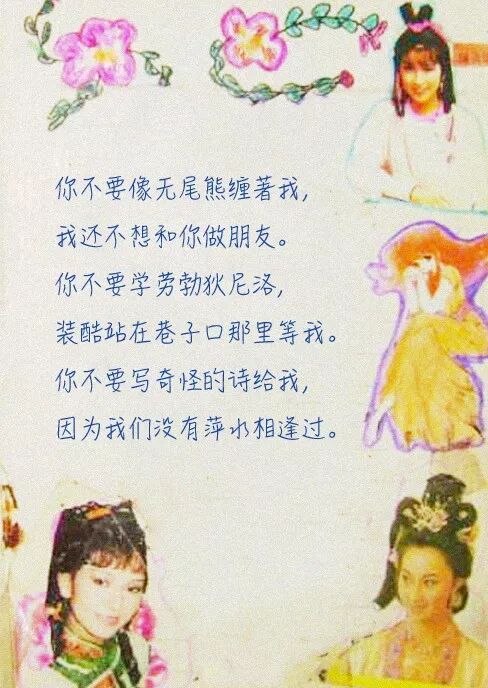 你不要像无尾熊缠著我，
我还不想和你做朋友。
你不要学劳勃狄尼洛，
装酷站在巷子口那里等我。
你不要写奇怪的诗给我，
因为我们没有萍水相逢过。